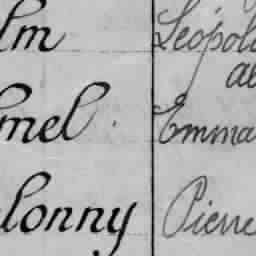 lm Léopold
al
mel Emma
lonny Pierre